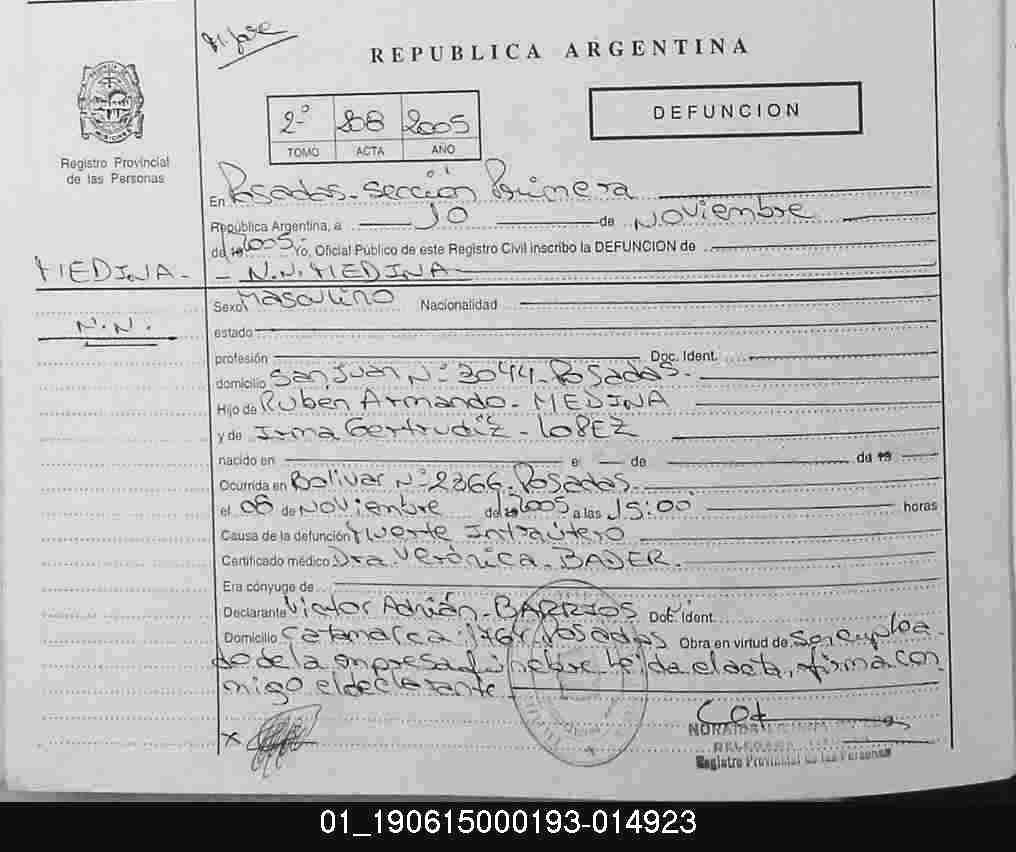 REPUBLICA ARGENTINA
DEFUNCION
2º 208 2005
TOMO ACTA AÑO
Registro Provincial
de las Personas
En Posadas - Sección Primera
República Argentina, a 10 de Noviembre
de 2005. Yo, Oficial Público de este Registro Civil inscribo la DEFUNCION de
MEDINA - - N.N. MEDINA -
N.N.
Sexo Masculino Nacionalidad
estado
profesión Doc. Ident.
domicilio San Juan Nº 3044 - Posadas.
Hijo de Ruben Armando - MEDINA
y de Irma Gertrudiz - LOPEZ
nacido en el de de 19
Ocurrida en Bolivar Nº 2366. Posadas.
el 08 de Noviembre de 2005 a las 15:00 horas
Causa de la defunción Muerte Intraútero
Certificado médico Dra. Verónica - BADER.
Era cónyuge de
Declarante Victor Adrián - BARRIOS Doc. Ident.
Domicilio Catamarca Posadas Obra en virtud de ser emplea-
do de la empresa fúnebre leida el acta, firma con
migo el declarante
X
Registro Provincial de las Personas
01_190615000193-014923